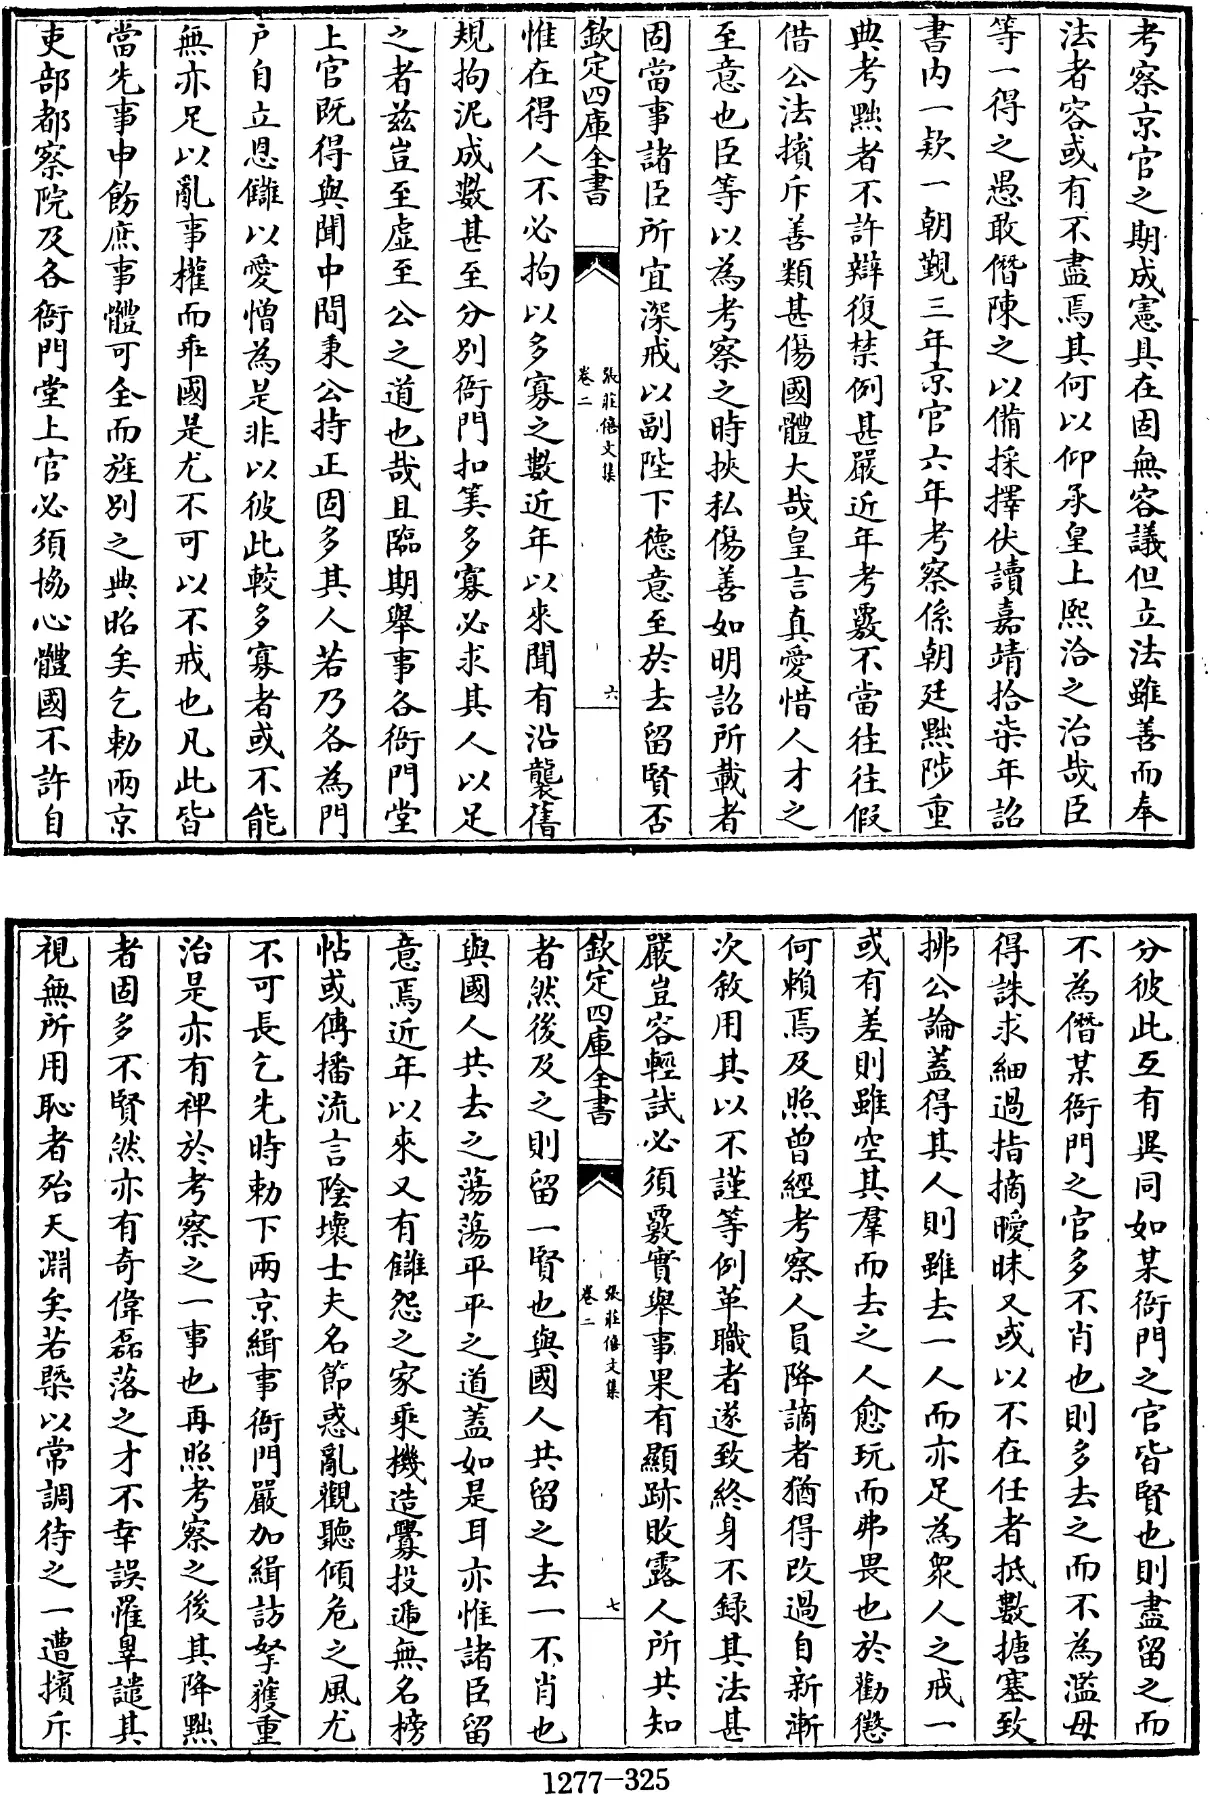 考察京官之期成憲具在固無容議但立法雖善而奉
法者容或有不盡焉其何以仰承皇上熙洽之治哉臣
等一得之愚敢僭陳之以備採擇伏讀嘉靖拾柒年詔
書内一款一朝覲三年京官六年考察係朝廷黜陟重
典考黜者不許辯復禁例甚嚴近年考覈不當往往假
借公法擯斥善類甚傷國體大哉皇言真愛惜人才之
至意也臣等以為考察之時挾私傷善如明詔所載者
固當事諸臣所宜深戒以副陛下德意至於去留賢否
欽定四庫全書
張莊僖文集
卷二
六
惟在得人不必拘以多寡之數近年以來聞有沿襲舊
規拘泥成數甚至分別衙門扣筭多寡必求其人以足
之者兹豈至虛至公之道也哉且臨期舉事各衙門堂
上官既得與聞中間秉公持正固多其人若乃各為門
户自立恩讎以愛憎為是非以彼此較多寡者或不能
無亦足以亂事權而乖國是尤不可以不戒也凡此皆
當先事申飭庶事體可全而旌別之典昭矣乞勅兩京
吏部都察院及各衙門堂上官必須協心體國不許自
分彼此互有異同如某衙門之官皆賢也則盡留之而
不為僭某衙門之官多不肖也則多去之而不為濫毋
得誅求細過指摘曖昧又或以不在任者抵數搪塞致
拂公論蓋得其人則雖去一人而亦足為衆人之戒一
或有差則雖空其羣而去之人愈玩而弗畏也於勸懲
何賴焉及照曾經考察人員降謫者猶得改過自新漸
次敘用其以不謹等例革職者遂致終身不録其法甚
嚴豈容輕試必須覈實舉事果有顯跡敗露人所共知
欽定四庫全書
張莊僖文集
卷二
七
者然後及之則留一賢也與國人共留之去一不肖也
與國人共去之蕩蕩平平之道蓋如是耳亦惟諸臣留
意焉近年以來又有讎怨之家乘機造釁投遞無名榜
帖或傳播流言陰壞士夫名節惑亂觀聽傾危之風尤
不可長乞先時勅下兩京緝事衙門嚴加緝訪拏獲重
治是亦有裨於考察之一事也再照考察之後其降黜
者固多不賢然亦有奇偉磊落之才不幸誤罹辠譴其
視無所用恥者殆天淵矣若槩以常調待之一遭擯斥
1277-325